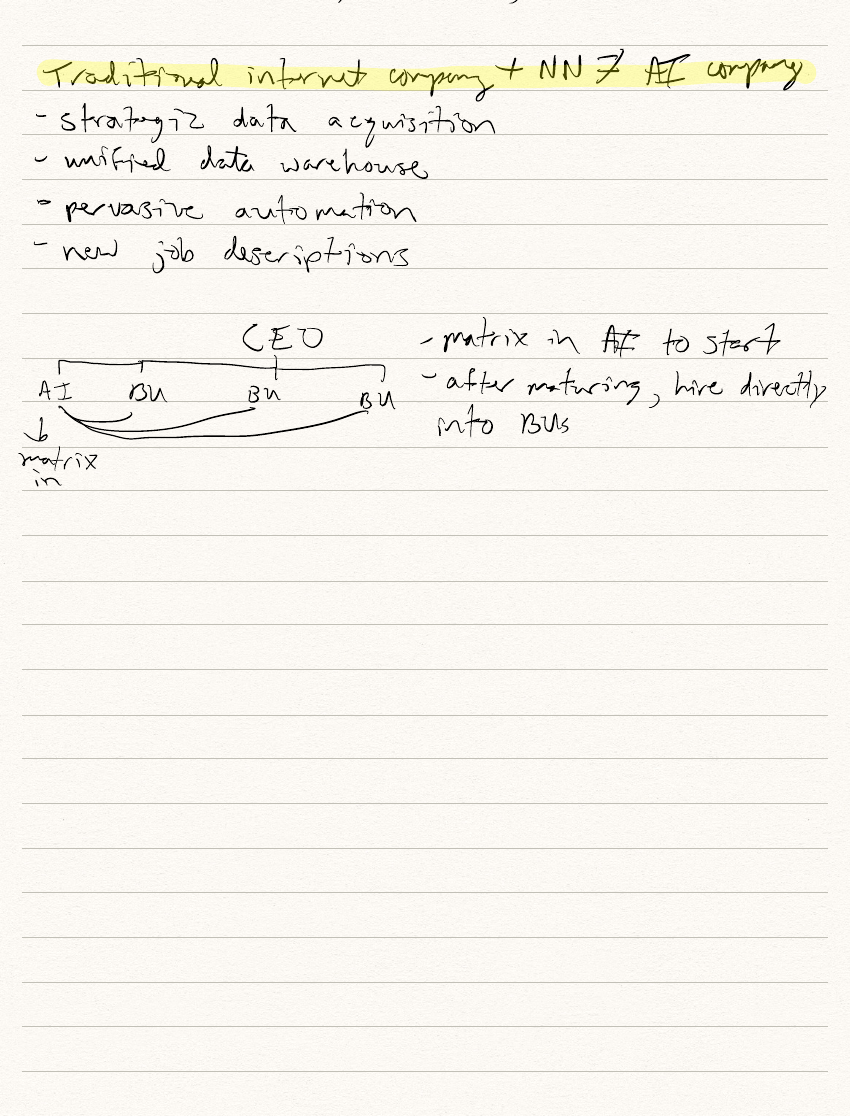 Traditional internet company + NN ≠ AI company
- strategic data acquisition
- unified data warehouse
- pervasive automation
- new job descriptions
CEO
AI BU BU BU
matrix
in
- matrix in AI to start
- after maturing, hire directly
into BUs